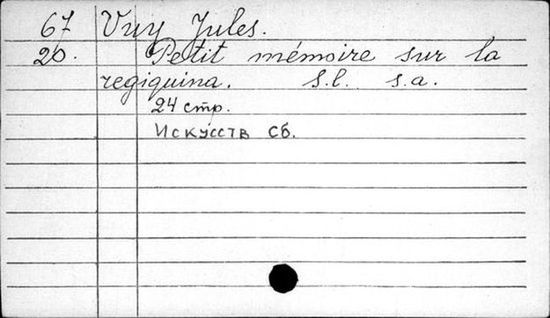 67 Vuy Jules.
20. Petit mémoire sur la
regiquina. S.l. s.a.
24 стр.
Искусств Сб.